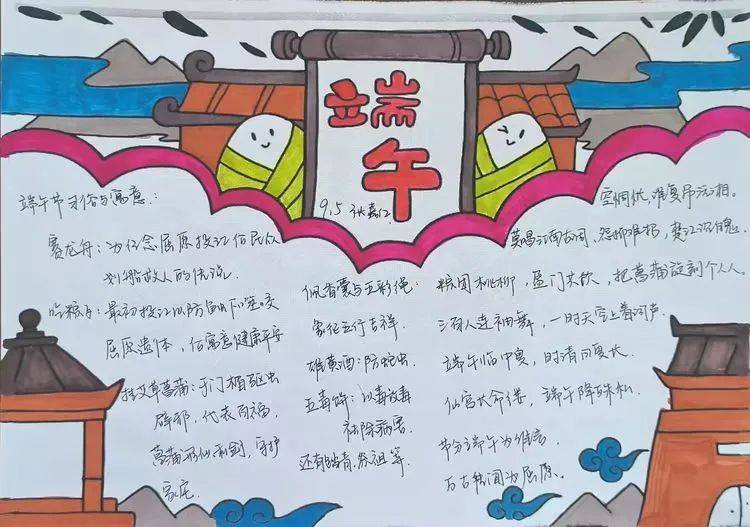 端午
9.5
端午节习俗与寓意:
赛龙舟:为纪念屈原投江后民众
划船救人的传说
吃粽子:最初投江以防鱼虾啃咬
屈原遗体,后寓意健康平安
挂艾草菖蒲:于门楣驱虫
辟邪,代表百福,
菖蒲形似利剑,守护
家庭
佩香囊与五彩绳:
象征五行吉祥
雄黄酒:防蛇虫
五毒饼:以毒攻毒
祛除病害
还有踏青、祭祖等
空惆怅,难复吊沅湘。
莫唱江南古调,怨抑难招,楚江沉魄
粽团桃柳,盈门共饮,把菖蒲旋刻个人人
三百人连袂舞,一时天空上着词声
端午临中夏,时清日复长
仙宫长命缕,端午降殊私
节分端午为谁言
万古传闻为屈原。